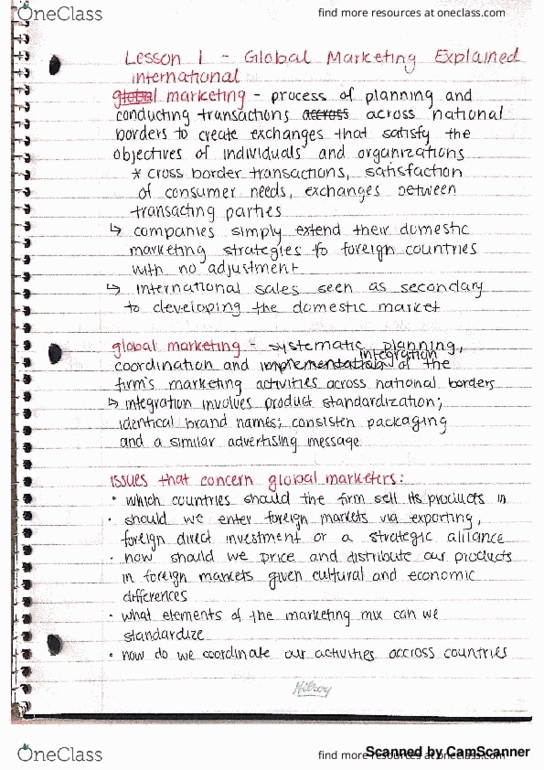 OneClass
find more resources at oneclass.com
Lesson 1 - Global Marketing Explained
international
global marketing - process of planning and
conducting transactions accross across national
borders to create exchanges that satisfy the
objectives of individuals and organizations
* cross border transactions, satisfaction
of consumer needs, exchanges between
transacting parties
↳ companies simply extend their domestic
marketing strategies to foreign countries
with no adjustment
↳ international sales seen as secondary
to developing the domestic market
global marketing - systematic planning,
integration
coordination and implementation of the
firm's marketing activities across national borders
↳ integration involves product standardization;
identical brand names; consisten packaging
and a similar advertising message
issues that concern global marketers:
• which countries should the firm sell its products in
• should we enter foreign markets via exporting,
foreign direct investment or a strategic alliance
• how should we price and distribute our products
in foreign markets given cultural and economic
differences
• what elements of the marketing mix can we
standardize
• how do we coordinate our activities accross countries
Hilroy
OneClass
find more resources at oneclass.com
Scanned by CamScanner